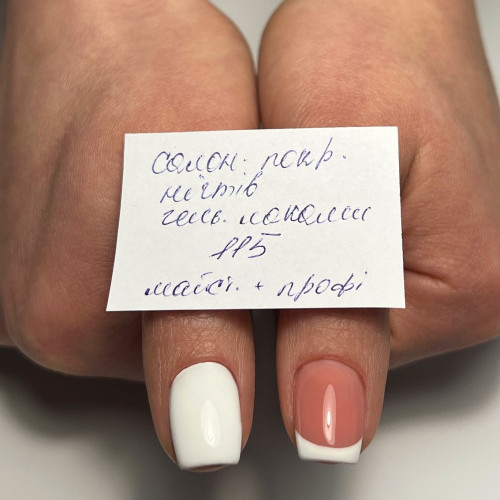 салон. покр.
нігтів
гель. лаками
115
майст. + профі